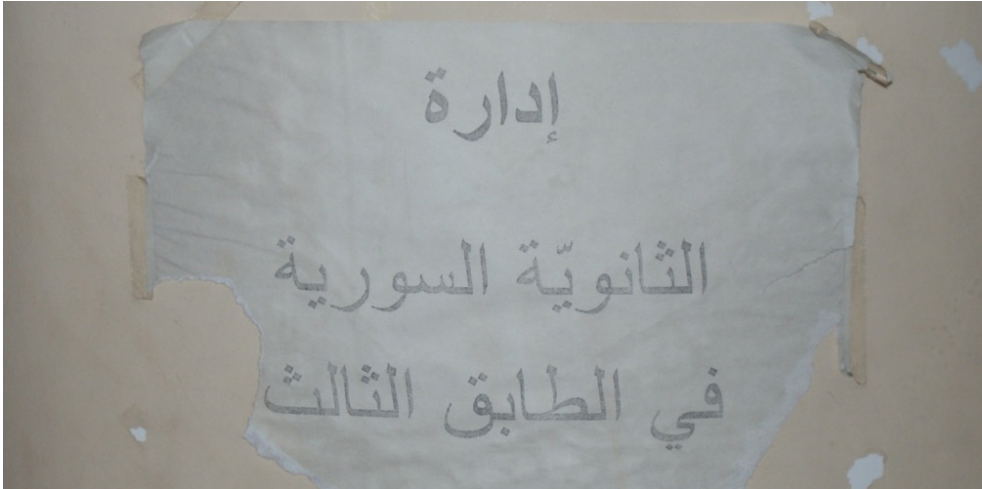 إدارة
الثانويّة السورية
في الطابق الثالث